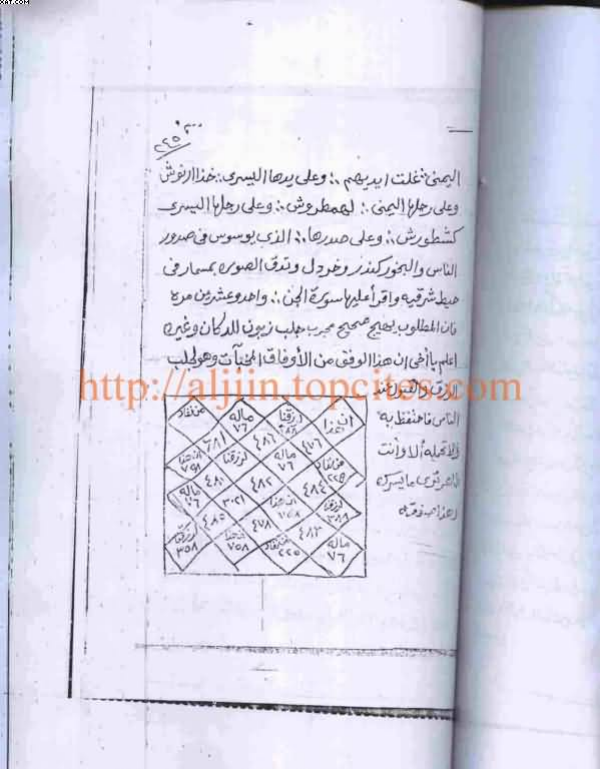 ٢٤٥
اليمنى غلت ايديهم ؞ وعلى يدها اليسرى ؞ خذا ارنوش
وعلى رجلها اليمنى ؞ لهمطروش ؞ وعلى رجلها اليسرى
كشطورش ؞ وعلى صدرها ؞ الذى يوسوس فى صدور
الناس والبخور كندر وخردل وتدق الصوره بمسمار فى
حيط شرقيه واقرأ عليها سورة الجن ؞ واحد وعشرين مره
فان المطلوب يهيج صحيح مجرب جلب زبون للدكان وغيره
اعلم يا أخى ان هذا الوفق من الأوفاق المخبآت وهو لجلب
الرزق والقبول عند
http://aljiin.topcites.com
الناس فاحتفظ به
ولا تحمله ألا وأنت
طاهر ترى ما يسرك
وهذا صفته
ان هذا
ارزقنا
٣٥٨
ماله
٧٦
من نفاد
٤٧٦
٤٨٦
٦٨١
من نفاد
٢٢٥
ماله
٧٦
لرزقنا
ان هذا
٧٥٨
٤٨٤
٤٨٢
٤٨٠
لرزقنا
٣٥٨
ان هذا
٧٥٨
٣٠٢١
ماله
٧٦
٤٨٣
٤٧٨
٤٨٥
ماله
٧٦
من نفاد
٢٢٥
ان هذا
٧٥٨
لرزقنا
٣٥٨